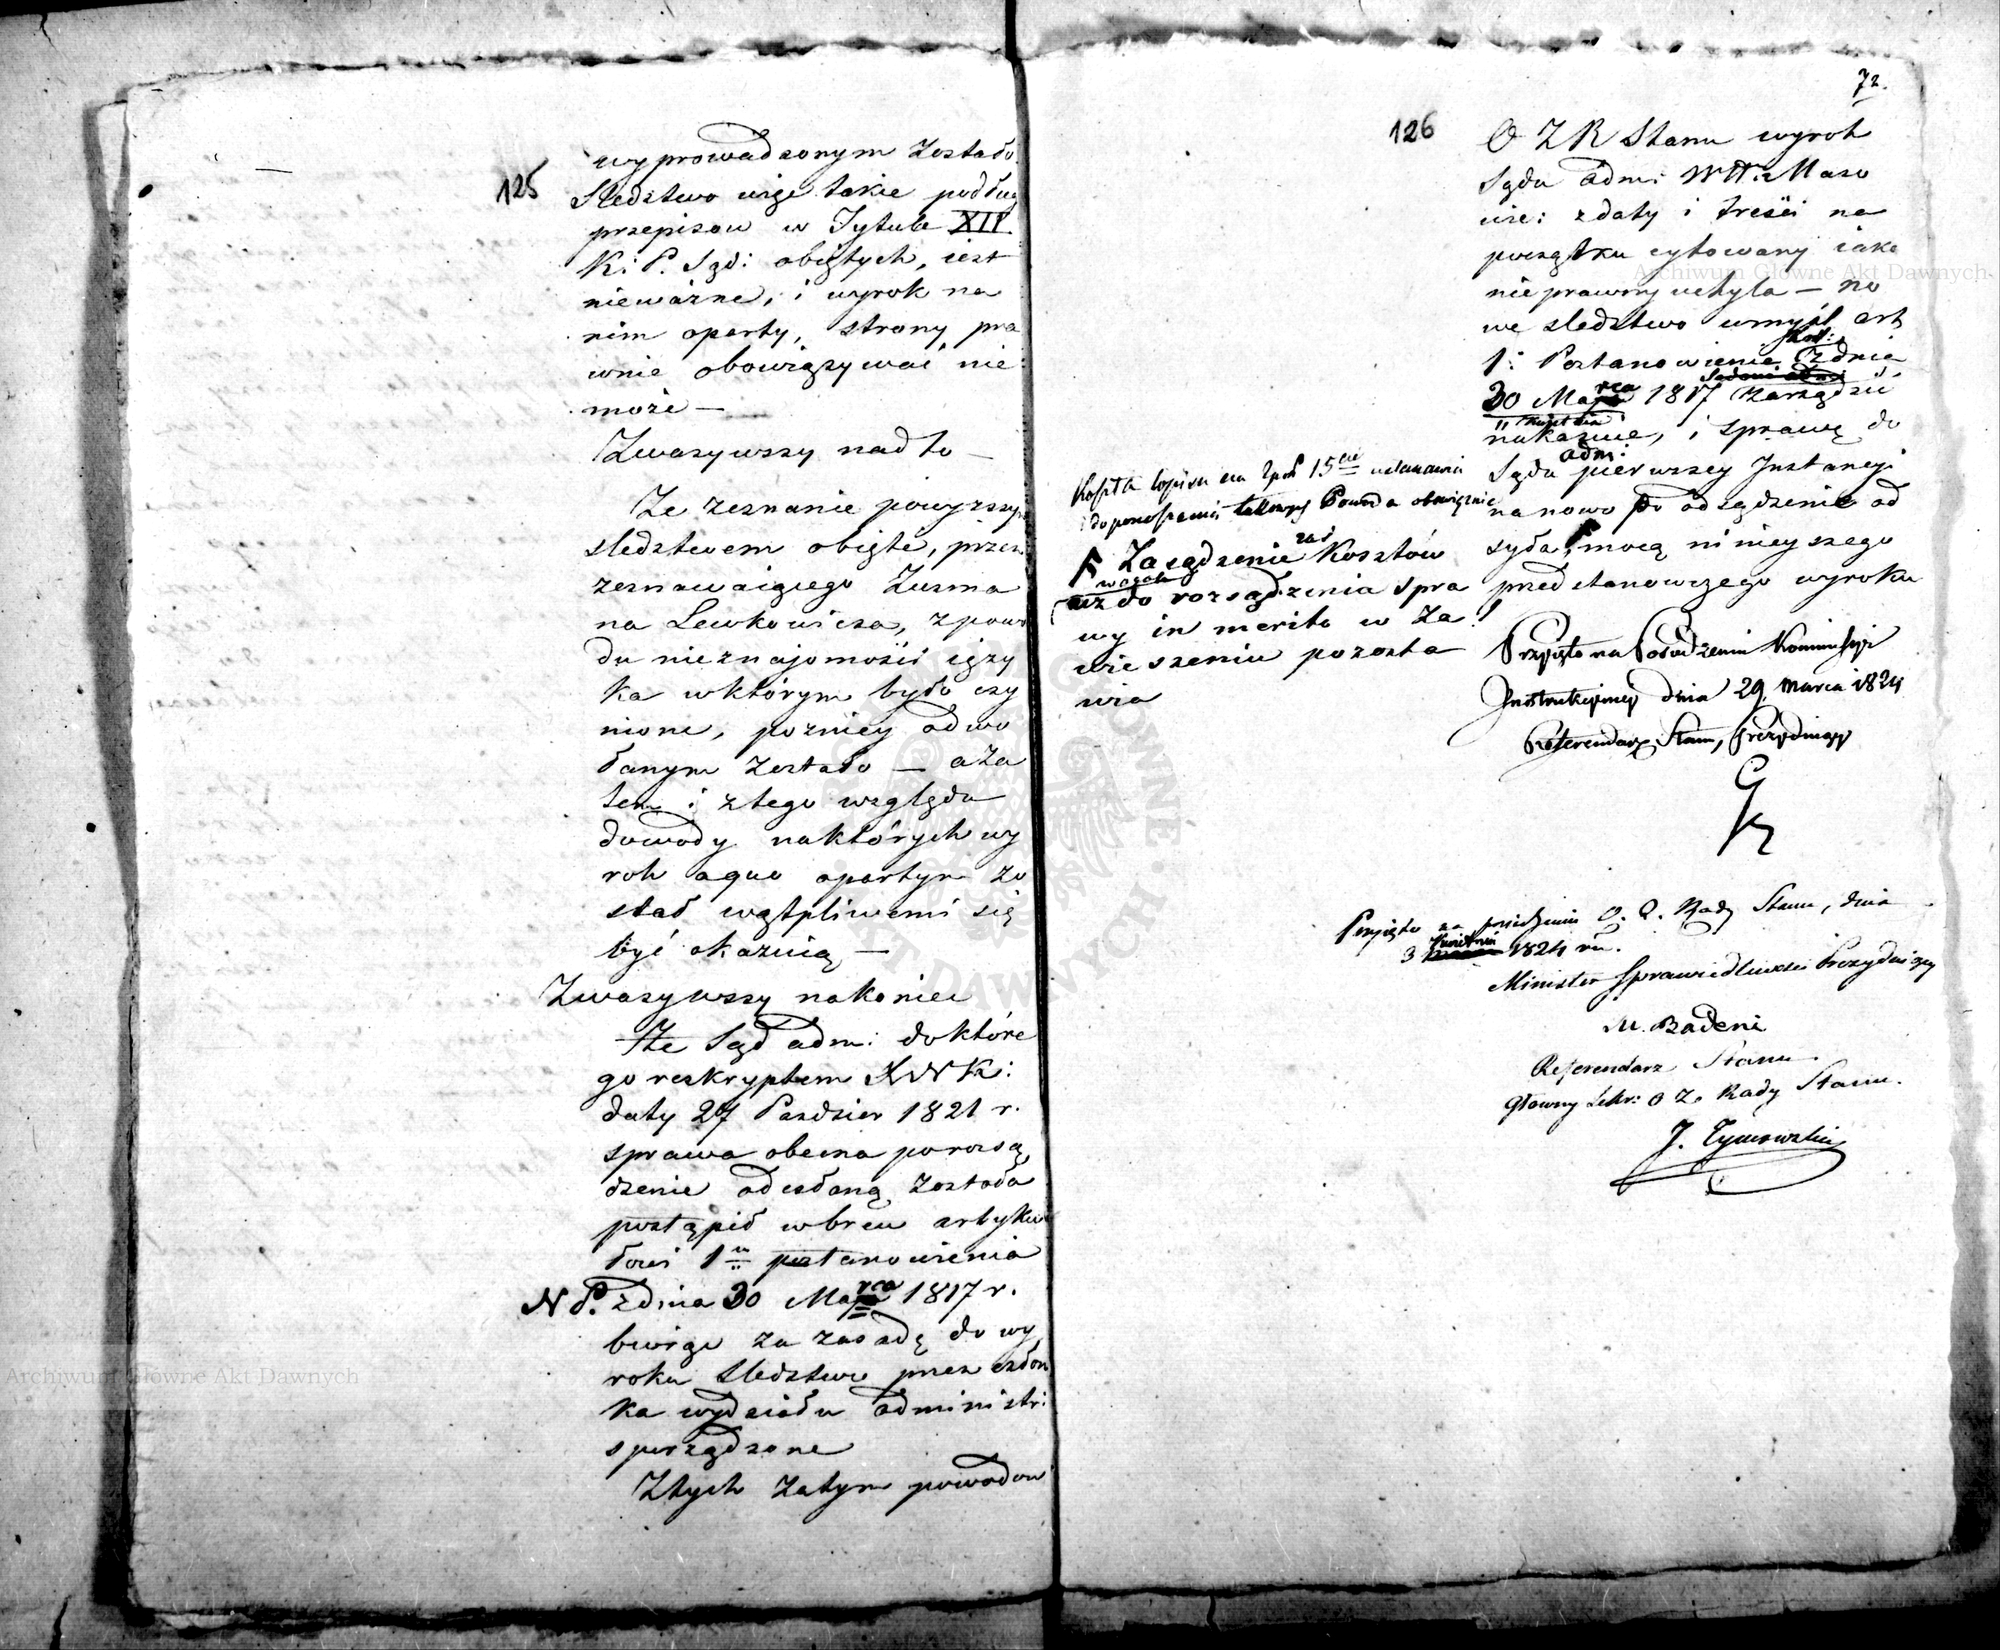 125
wyprowadzonym zostało.
Sledztwo więc takie podług
przepisow w Tytule XII.
K: P. Sąd: obiętych, iest
nieważne, i wyrok na
nim oparty, strony pra
wnie obowiązywać nie
może —
Zważywszy nadto —
Ze zeznanie powyższym
sledztwem obięte, przez
zeznawaiącego Zusma
na Lewkowicza, zpowo
du nieznajomości ięzy
ka wktórym było czy
nione, pozniey odwo
łanym zostało — a za
tem i ztego względu
dowody naktórych wy
rok aquo opartym zo
stał wątpliwemi się
być okazuią —
Zważywszy nakoniec
Ze Sąd adm: doktóre
go reskryptem XNK:
daty 27 Pazdzier 1821 r.
sprawa obecna porozsą
dzenie odesłaną została
postąpił wbrew artyku
łowi 1u postanowienia
N P. zdnia 30 Marca 1817 r.
biorąc za zasadę do wy
roku Sledztwo przez człon
ka wydziału administr:
sporządzone
Ztych Zatym powodow
72.
126
O Z R Stanu wyrok
Sądu Adm: Wtt: Mazo
wie: zdaty i treści na
początku cytowany iako
nieprawny uchyla — no
we sledztwo wmyśl art
1: Postanowienia zdnia
30 Marca 1817 zarządzić
nakazuie, i sprawę do
Sądu adm: pierwszey Instancyi
nanowo do odsądzenia od
syła, mocą ninieyszego
przedstanowczego wyroku
Koszta wpisu na Złpol 15cie ustanawia
i do ponoszenia takowych Powoda obowiązuie
Zasądzenie zaś Kosztów
wogóle
aż do rozsądzenia spra
wy in merito w Za
wieszeniu pozosta
wia
Przyięto na Posiedzeniu Kommissyi
Instrukcyjney dnia 29 Marca 1824
Referendarz Stanu, Prezyduiący
Przyięto na posiedzeniu O. Z. Rady Stanu, dnia
3 Kwietnia 1824 ru.
Minister Sprawiedliwości Prezyduiący
M. Badeni
Referendarz Stanu.
Główny Sekr: O Z. Rady Stanu.
J. Tymowski
Archiwum Główne Akt Dawnych
Archiwum Główne Akt Dawnych